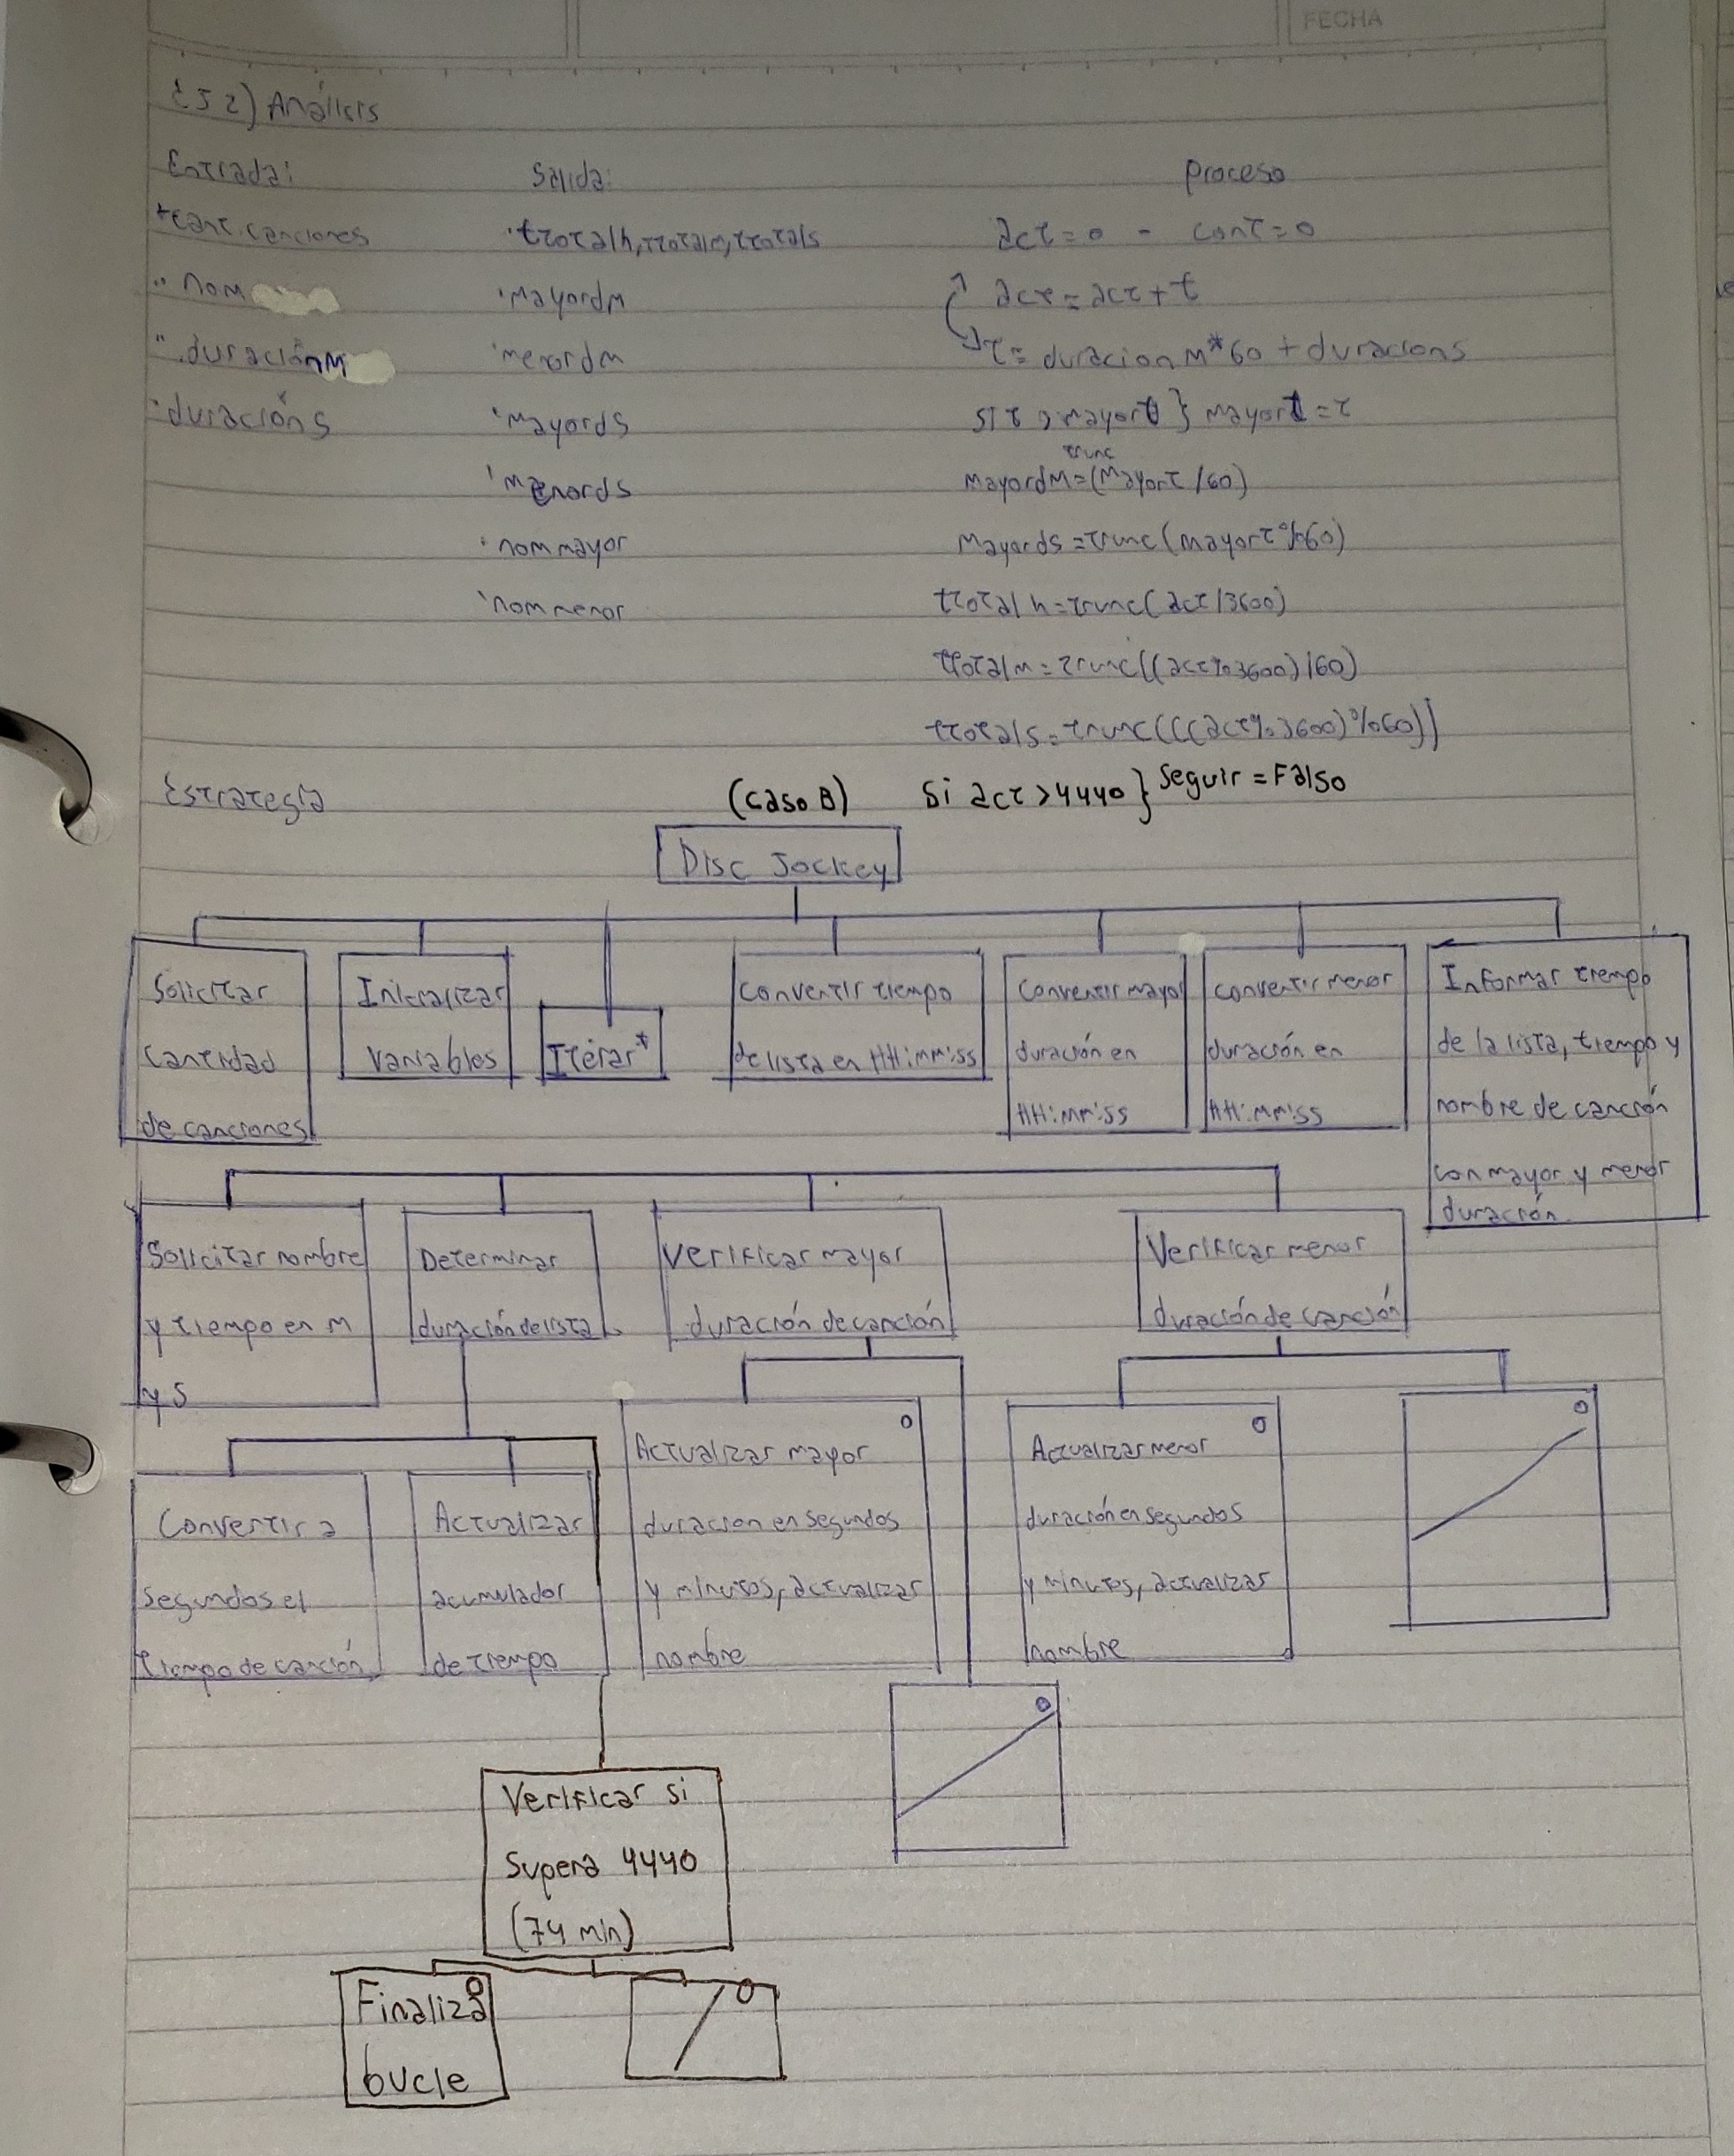 FECHA
EJ 2) Análisis
Entrada: Salida: proceso
*cant. canciones ·ttotalh, ttotalm, ttotals act=0 - cont=0
" nom ·mayordm act=act+t
" .duraciónM ·menordm t=duracionM*60+duracions
·duracións ·mayords si t > mayort } mayort=t
·menords mayordM=trunc(mayort/60)
·nommayor Mayords=trunc(mayort%60)
·nommenor ttotalh=trunc(act/3600)
ttotalm=trunc((act%3600)/60)
ttotals=trunc(((act%3600)%60))
Estrategia (caso B) Si act >4440 } Seguir = Falso
Disc Jockey
Solicitar
cantidad
de canciones
Inicializar
variables
Iterar*
Convertir tiempo
de lista en HH:mm:ss
Convertir mayor
duración en
HH:mm:ss
convertir menor
duración en
HH:mm:ss
Informar tiempo
de la lista, tiempo y
nombre de canción
con mayor y menor
duración.
Solicitar nombre
y tiempo en m
y s
Determinar
duración de lista
Verificar mayor
duración de canción
Verificar menor
duración de canción
Convertir a
segundos el
tiempo de canción
Actualizar
acumulador
de tiempo
Actualizar mayor
duracion en segundos
y minutos, actualizar
nombre
Actualizar menor
duración en segundos
y minutos, actualizar
nombre
Verificar si
Supera 4440
(74 min)
Finaliza
bucle